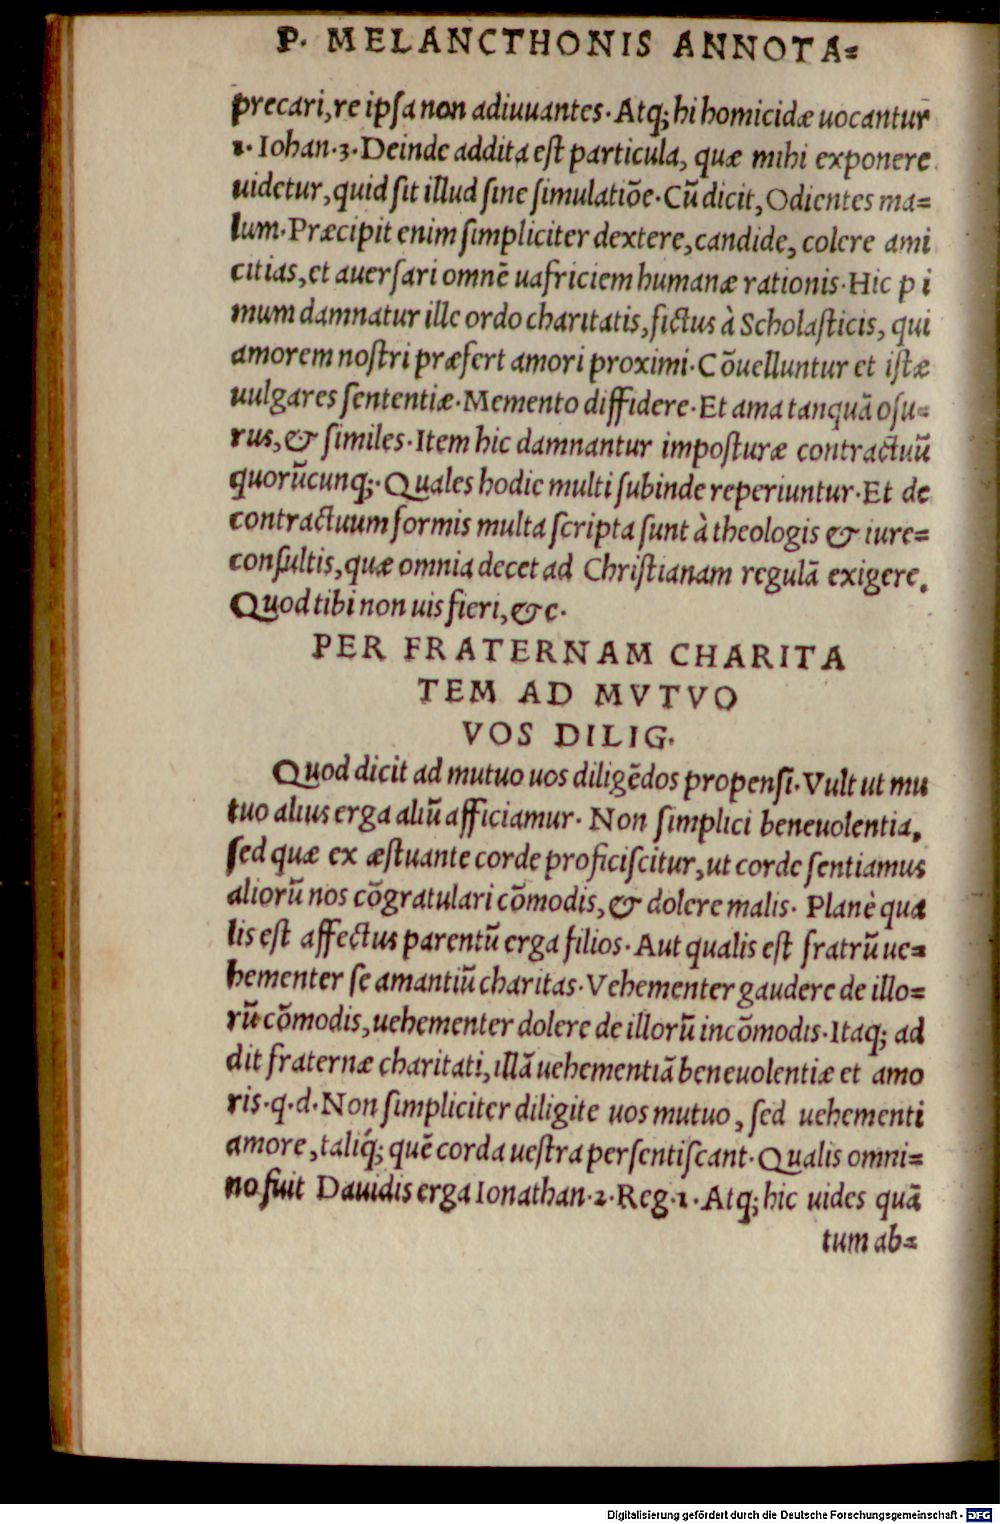 P. MELANCTHONIS ANNOTA=
precari, re ipſa non adiuuantes. Atq; hi homicidæ uocantur
1. Iohan. 3. Deinde addita eſt particula, quæ mihi exponere
uidetur, quid ſit illud ſine ſimulatiōe. Cū dicit, Odientes ma=
lum. Præcipit enim ſimpliciter dextere, candide, colere ami
citias, et auerſari omnē uafriciem humanæ rationis. Hic p i
mum damnatur ille ordo charitatis, fictus à Scholaſticis, qui
amorem noſtri præfert amori proximi. Cōuelluntur et iſtæ
uulgares ſententiæ. Memento diffidere. Et ama tanquā oſu=
rus, & ſimiles. Item hic damnantur impoſturæ contractuū
quorūcunq;. Quales hodie multi ſubinde reperiuntur. Et de
contractuum formis multa ſcripta ſunt à theologis & iure=
conſultis, quæ omnia decet ad Chriſtianam regulā exigere.
Quod tibi non uis fieri, &c.
PER FRATERNAM CHARITA
TEM AD MVTVO
VOS DILIG.
Quod dicit ad mutuo uos diligēdos propenſi. Vult ut mu
tuo alius erga aliū afficiamur. Non ſimplici beneuolentia,
ſed quæ ex æſtuante corde proficiſcitur, ut corde ſentiamus
aliorū nos cōgratulari cōmodis, & dolere malis. Planè qua
lis eſt affectus parentū erga filios. Aut qualis eſt fratrū ue=
hementer ſe amantiū charitas. Vehementer gaudere de illo=
rū cōmodis, uehementer dolere de illorū incōmodis. Itaq; ad
dit fraternæ charitati, illā uehementiā beneuolentiæ et amo
ris. q. d. Non ſimpliciter diligite uos mutuo, ſed uehementi
amore, taliq́; quē corda ueſtra perſentiſcant. Qualis omni=
no fuit Dauidis erga Ionathan. 2. Reg. 1. Atq; hic uides quā
tum ab=
Digitalisierung gefördert durch die Deutsche Forschungsgemeinschaft - DFG